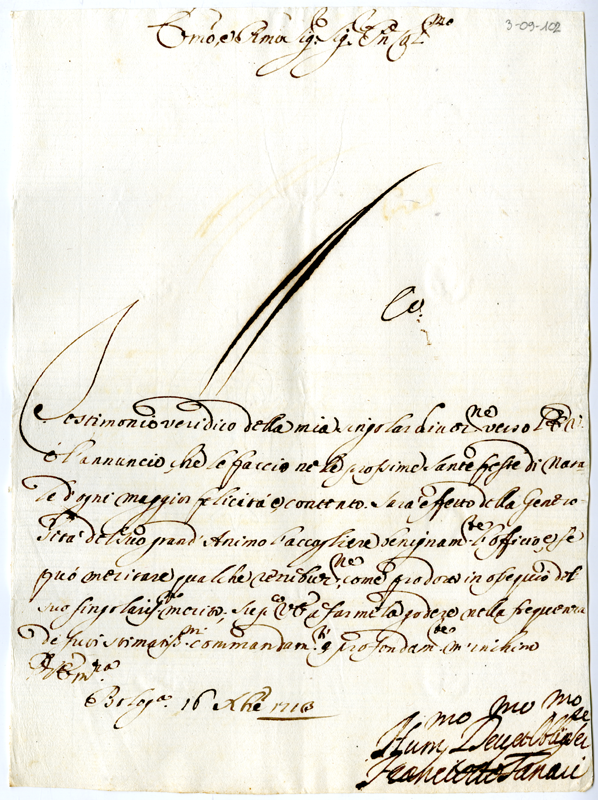 3-09-102
Em̃o, e Rmo Sig.r Sig.r Pn̄e Col.mo
Co:
Testimonio veridico della mia singolar divoz.ne verso l'E.V.
è l'annuncio, che le faccio nelle prossime Sante feste di Nata-
le d'ogni maggior felicità e, contento. Sarà effetto della Genero-
sità del suo grand'Animo l'accogliere benignam.te l'officio, e, se
può meritare qualche retribuz.ne, come prodotto in ossequio del
suo singolariss.mo merito, su p.co V.E. a farmela godere nella frequenza
de suoi stimatiss.mi commandam.ti, e profondam.te m'inchino
Di V. Em.za
Bolog.a 16 Xbre 1713
Hum.mo Dev.mo Obligat.mo Se.re
Franc. Tanari